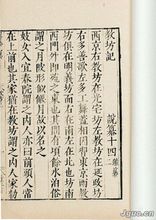 教坊記 說纂十四
西京右教坊在光宅坊左教坊在延政坊
右多善歌左多工舞蓋相因習東京兩教
坊俱在明義坊而右在南左在北也坊南
西門外即苑之東也其間有頃餘水泊俗
謂之月陂形似偃月故以名之
妓女入宜春院謂之內人亦曰前頭人常
在上前也其家猶在教坊謂之內人家